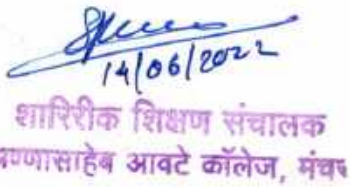 14/06/2022
शारिरीक शिक्षण संचालक
अण्णासाहेब आवटे कॉलेज, मंचर